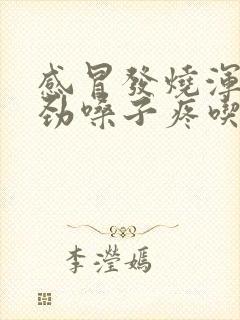 感冒發燒渾
勁嗓子疼喫
李瀅嫣